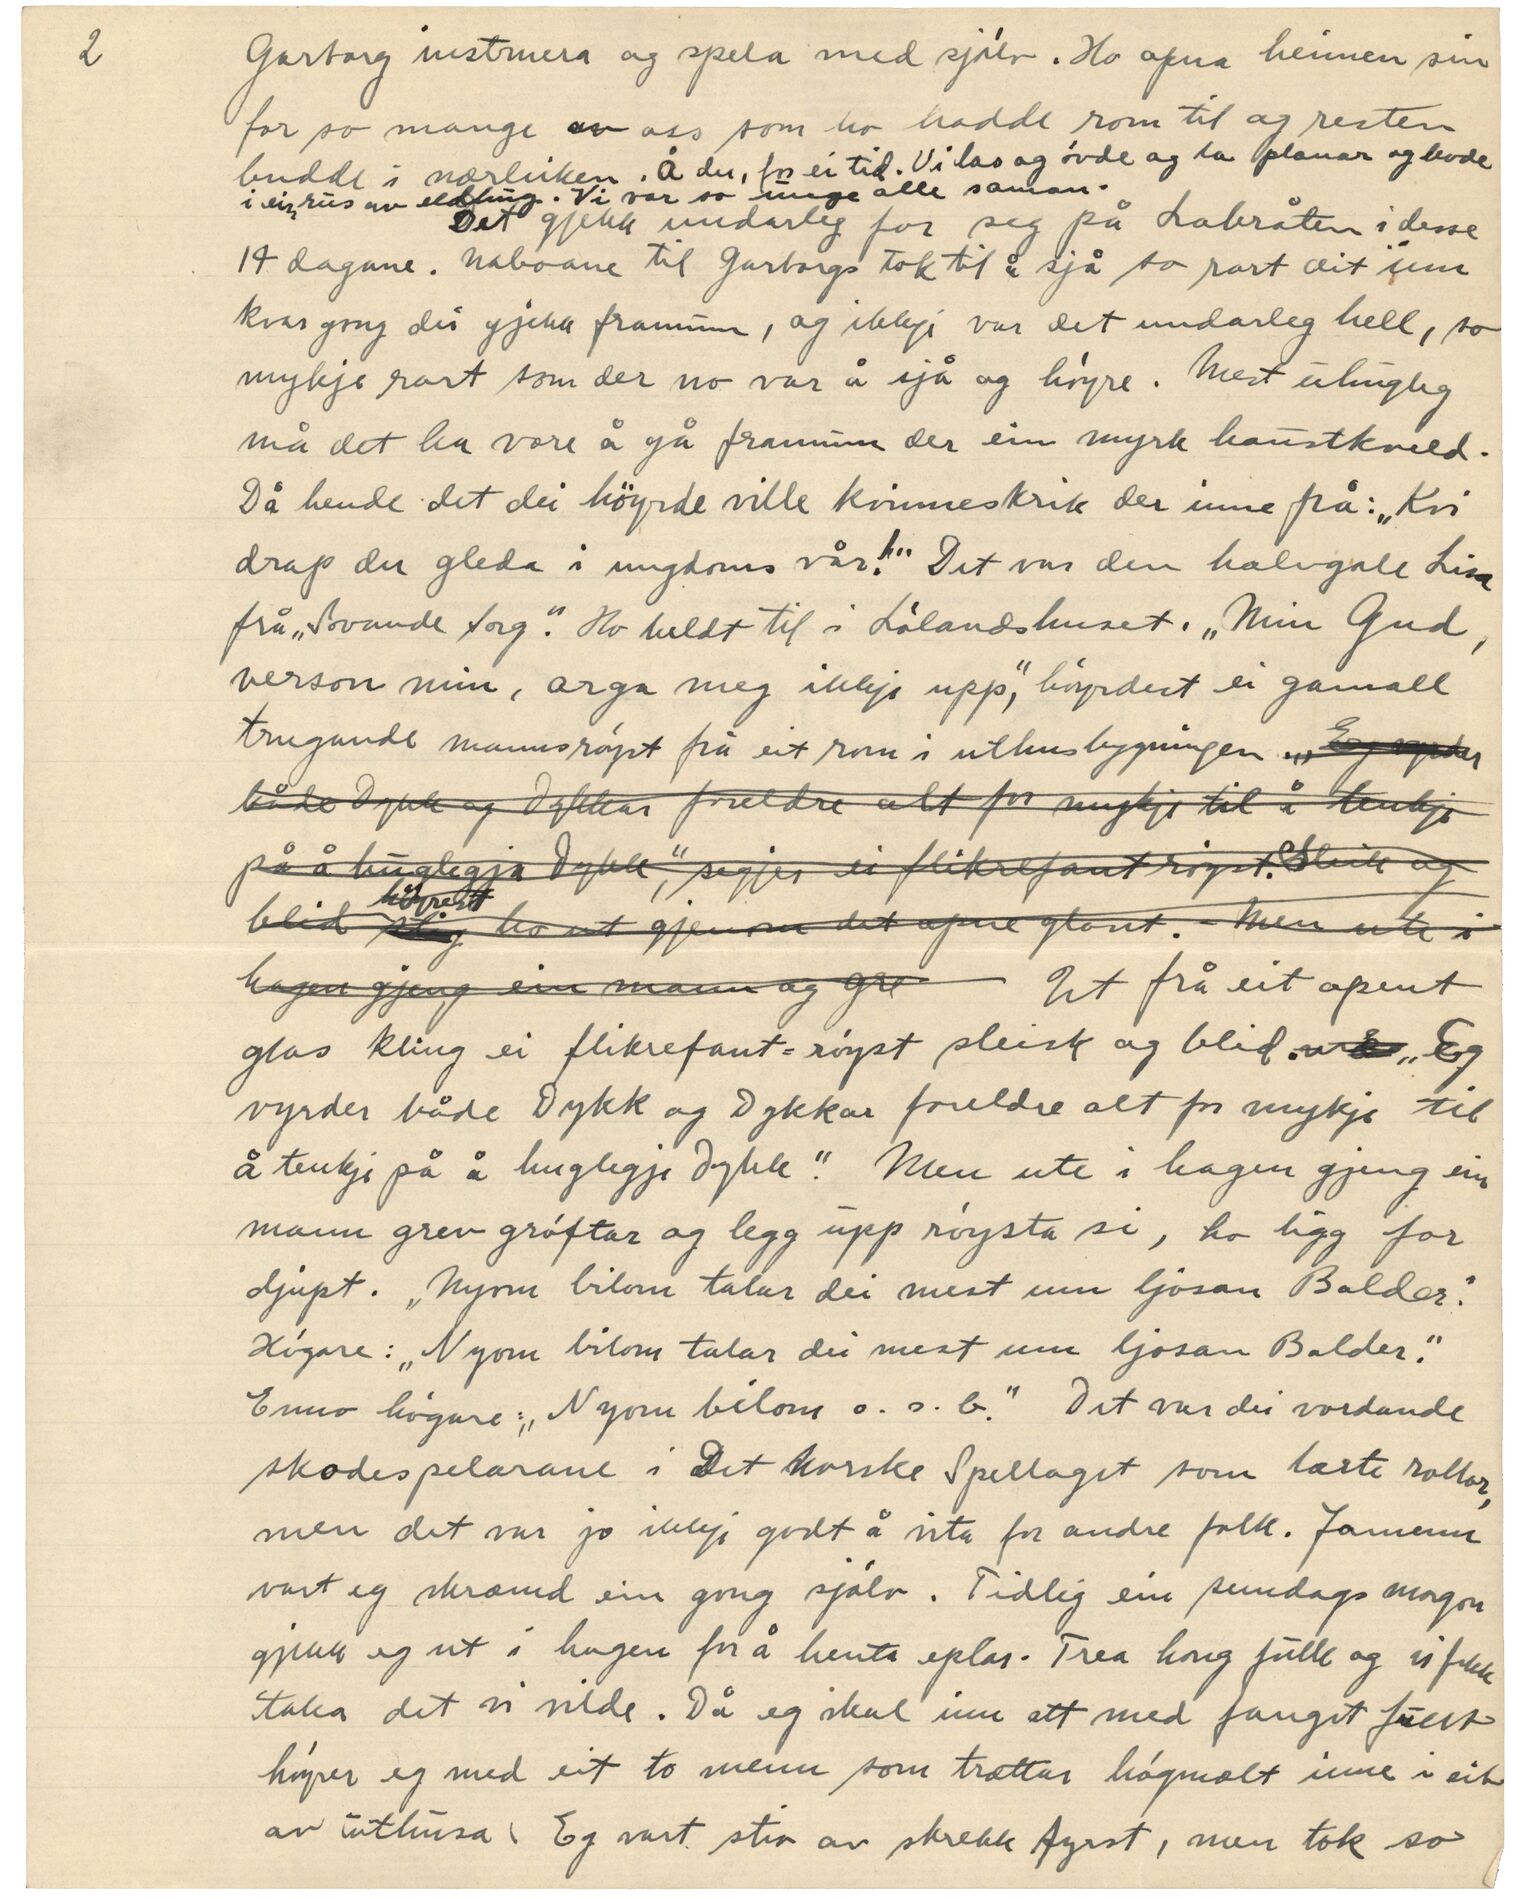 2
Garborg instruera og spela med sjølv. Ho opna heimen sin
for so mange av oss som ho hadde rom til og resten
budde i nærleiken. Å du, for ei tid. Vi las og øvde og la planar og levde
i ein rus av eldhug. Vi var so unge alle saman.
Det gjekk underleg for seg på Labråten i desse
14 dagane. Naboane til Garborgs tok til å sjå so rart dit inn
kvar gong dei gjekk framum, og ikkje var det underleg hell, so
mykje rart som der no var å sjå og høyre. Mest uhugleg
må det ha vore å gå framum der ein myrk haustkveld.
Då hende det dei høyrde ville kvinneskrik der inne frå: „Kvi
drap du gleda i ungdoms vår!" Det var den halvgale Lisa
frå „Sovande sorg". Ho heldt til i Lølandshuset. „Min Gud,
verson min, arga meg ikkje upp", høyrdest ei gamall
trugande mannsrøyst frå eit rom i uthusbygningen. „Eg vyrder
både Dykk og Dykkar foreldre alt for mykje til å tenkje
på å huglegja Dykk", segjer ei flikrefant røyst. Sleik og
blid høyrest ho ut gjenom det opne glaset. – Men ute i
hagen gjeng ein mann og gre Ut frå eit opent
glas kling ei flikrefant=røyst sleisk og blid. „Eg
vyrder både Dykk og Dykkar foreldre alt for mykje til
å tenkje på å huglegje Dykk". Men ute i hagen gjeng ein
mann grev grøftar og legg upp røysta si, ho ligg for
djupt. „Nyom bilom talar dei mest um ljosan Balder".
Høgare: „Nyom bilom talar dei mest um ljosan Balder."
Enno høgare: „Nyom bilom o. s. b." Det var dei vordande
skodespelarane i Det Norske Spellaget som lærte rollor,
men det var jo ikkje godt å vita for andre folk. Jamenn
vart eg skræmd ein gong sjølv. Tidleg ein sundags morgon
gjekk eg ut i hagen for å henta eplar. Trea hong fulle og vi fekk
taka det vi vilde. Då eg skal inn att med fanget fullt
høyrer eg med eit to menn som trættar høgmælt inne i eit
av uthusa. Eg vart stiv av skrekk fyrst, men tok so